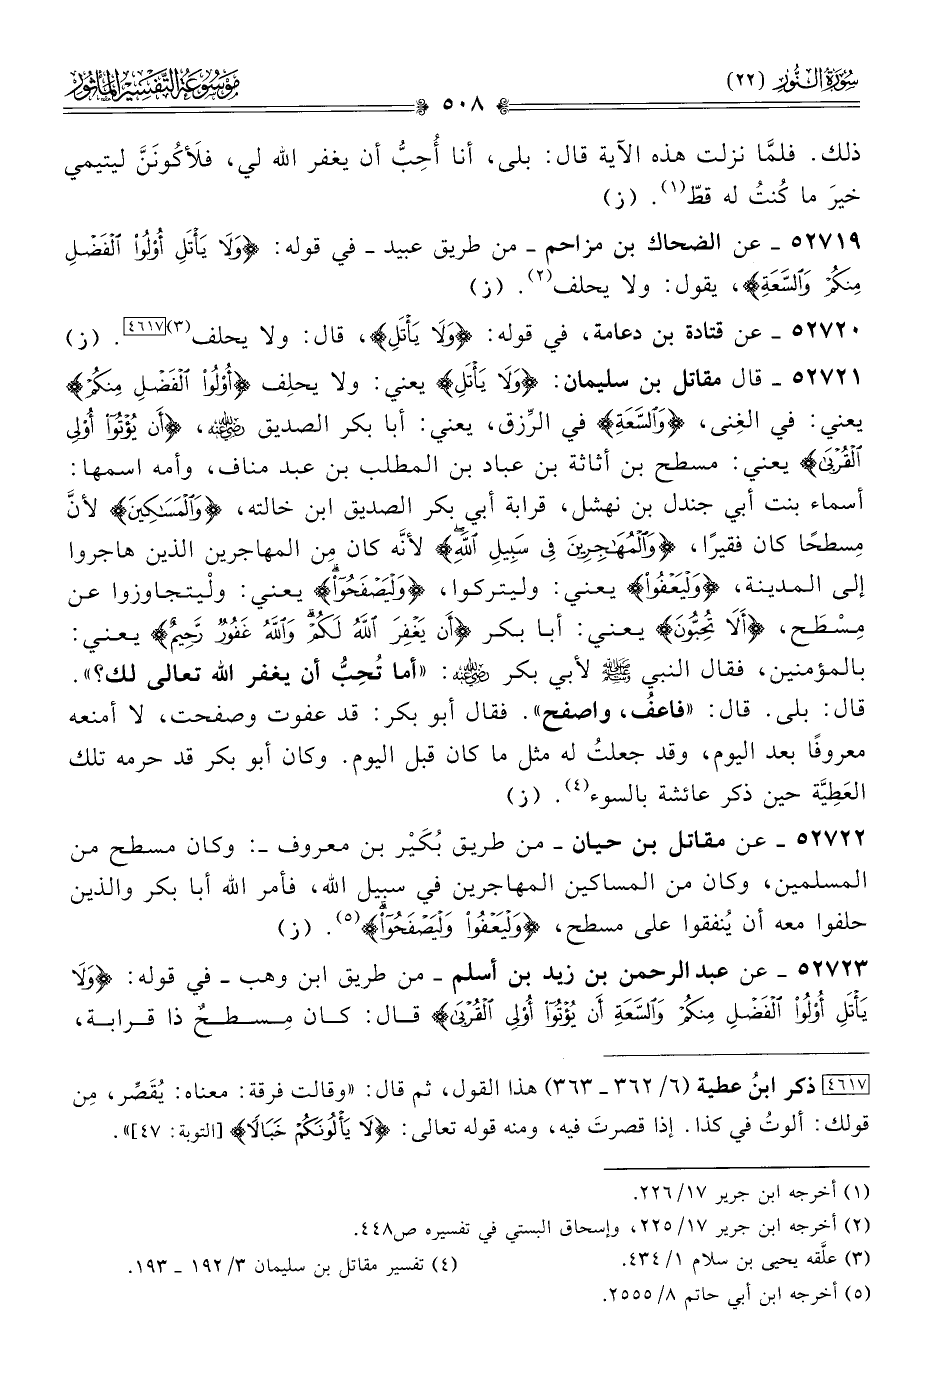 سُورَةُ النُّور (٢٢)
موسوعة التفسير المأثور
٥٠٨
ذلك. فلمَّا نزلت هذه الآية قال: بلى، أنا أُحِبُّ أن يغفر الله لي، فلَأكُونَنَّ ليتيمي
خيرَ ما كُنتُ له قطّ(١). (ز)
٥٢٧١٩ ـ عن الضحاك بن مزاحم ـ من طريق عبيد ـ في قوله: ﴿وَلَا يَأْتَلِ أُوْلُواْ ٱلْفَضْلِ
مِنكُمْ وَٱلسَّعَةِ﴾، يقول: ولا يحلف(٢). (ز)
٥٢٧٢٠ ـ عن قتادة بن دعامة، في قوله: ﴿وَلَا يَأْتَلِ﴾، قال: ولا يحلف(٣)[٤٦١٧]. (ز)
٥٢٧٢١ ـ قال مقاتل بن سليمان: ﴿وَلَا يَأْتَلِ﴾ يعني: ولا يحلِف ﴿أُوْلُواْ ٱلْفَضْلِ مِنكُمْ﴾
يعني: في الغِنى، ﴿وَٱلسَّعَةِ﴾ في الرِّزق، يعني: أبا بكر الصديق رضي الله عنه، ﴿أَن يُؤْتُوٓاْ أُوْلِى
ٱلْقُرْبَىٰ﴾ يعني: مسطح بن أثاثة بن عباد بن المطلب بن عبد مناف، وأمه اسمها:
أسماء بنت أبي جندل بن نهشل، قرابة أبي بكر الصديق ابن خالته، ﴿وَٱلْمَسَٰكِينَ﴾ لأنَّ
مِسطحًا كان فقيرًا، ﴿وَٱلْمُهَٰجِرِينَ فِى سَبِيلِ ٱللَّهِۖ﴾ لأنه كان مِن المهاجرين الذين هاجروا
إلى المدينة، ﴿وَلْيَعْفُواْ﴾ يعني: وليتركوا، ﴿وَلْيَصْفَحُوٓاْۗ﴾ يعني: ولْيتجاوزوا عن
مِسْطَح، ﴿أَلَا تُحِبُّونَ﴾ يعني: أبا بكر ﴿أَن يَغْفِرَ ٱللَّهُ لَكُمْۗ وَٱللَّهُ غَفُورٌ رَّحِيمٌ﴾ يعني:
بالمؤمنين، فقال النبي ﷺ لأبي بكر رضي الله عنه: «أما تُحِبُّ أن يغفر الله تعالى لك؟».
قال: بلى. قال: «فاعفُ، واصفح». فقال أبو بكر: قد عفوت وصفحت، لا أمنعه
معروفًا بعد اليوم، وقد جعلتُ له مثل ما كان قبل اليوم. وكان أبو بكر قد حرمه تلك
العَطِيَّة حين ذكر عائشة بالسوء(٤). (ز)
٥٢٧٢٢ ـ عن مقاتل بن حيان ـ من طريق بُكَيْر بن معروف ـ: وكان مسطح من
المسلمين، وكان من المساكين المهاجرين في سبيل الله، فأمر الله أبا بكر والذين
حلفوا معه أن يُنفقوا على مسطح، ﴿وَلْيَعْفُواْ وَلْيَصْفَحُوٓاْۗ﴾(٥). (ز)
٥٢٧٢٣ ـ عن عبد الرحمن بن زيد بن أسلم ـ من طريق ابن وهب ـ في قوله: ﴿وَلَا
يَأْتَلِ أُوْلُواْ ٱلْفَضْلِ مِنكُمْ وَٱلسَّعَةِ أَن يُؤْتُوٓاْ أُوْلِى ٱلْقُرْبَىٰ﴾ قال: كان مِسطحٌ ذا قرابة،
[٤٦١٧] ذكر ابنُ عطية (٦/ ٣٦٢ ـ ٣٦٣) هذا القول، ثم قال: «وقالت فرقة: معناه: يُقَصِّر، مِن
قولك: ألوتُ في كذا. إذا قصرتَ فيه، ومنه قوله تعالى: ﴿لَا يَأْلُونَكُمْ خَبَالًا﴾ [التوبة: ٤٧]».
(١) أخرجه ابن جرير ١٧/ ٢٢٦.
(٢) أخرجه ابن جرير ١٧/ ٢٢٥، وإسحاق البستي في تفسيره ص٤٤٨.
(٣) علَّقه يحيى بن سلام ١/ ٤٣٤.
(٤) تفسير مقاتل بن سليمان ٣/ ١٩٢ ـ ١٩٣.
(٥) أخرجه ابن أبي حاتم ٨/ ٢٥٥٥.